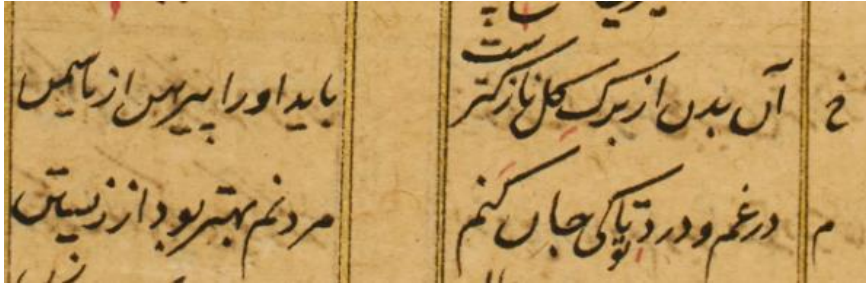 خ آں بدن از برک کل نازکترست باید او را پیرہن از یاسمیں
م در غم و درد تو تا کی جاں کنم مردنم بہتر بود از زیستن